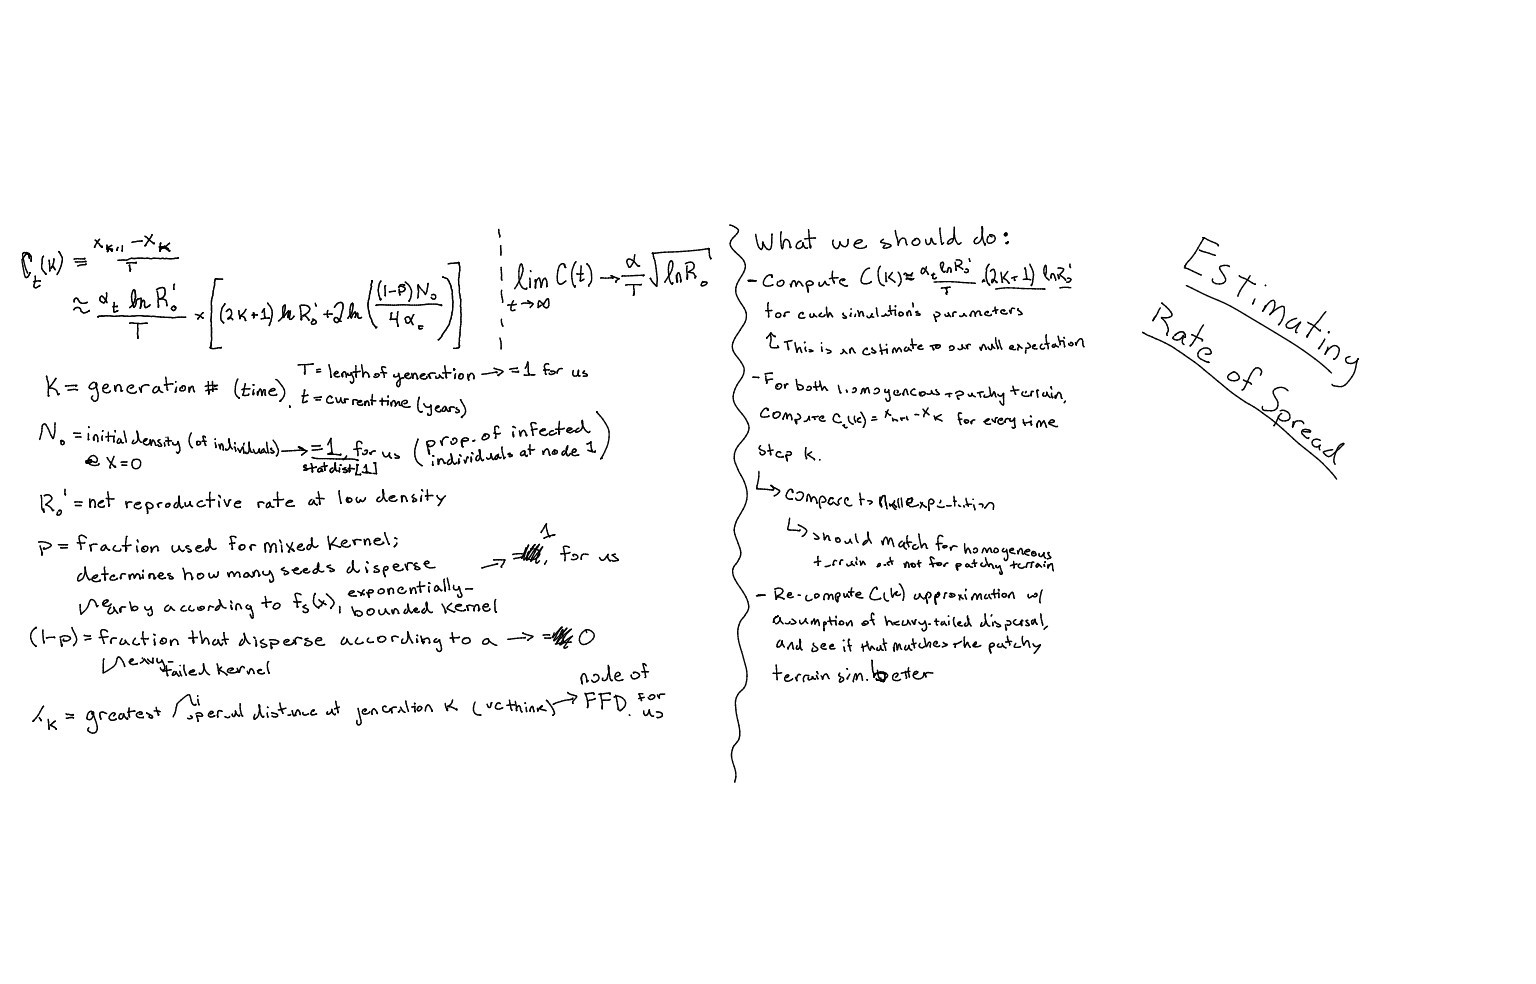 C_t(K) ≡ (x_{K+1} - x_K) / T
≈ (α_t ln R_0') / T × [(2K+1) ln R_0' + 2 ln ((1-P) N_0 / 4α_0)]
lim_{t→∞} C(t) → α/T √(ln R_0)
K = generation # (time).
T = length of generation → = 1 for us
t = current time (years)
N_0 = initial density (of individuals) → = 1, for us (prop. of infected
@ X=0
statdist[1]
individuals at node 1)
R_0' = net reproductive rate at low density
P = fraction used for mixed kernel;
determines how many seeds disperse → = 1, for us
nearby according to f_s(x), exponentially-
bounded kernel
(1-p) = fraction that disperse according to a → = 0
heavy-
tailed kernel
= greatest dispersal distance at generation K (we think) → node of
FFD for
us
What we should do:
- Compute C(K) ≈ (α_t ln R_0') / T · (2K+1) ln R_0'
for each simulation's parameters
↑ This is an estimate to our null expectation
- For both homogenous + patchy terrain,
compute C_t(k) = x_{k+1} - x_K for every time
step k.
↳ compare to null expectation
↳ should match for homogeneous
terrain but not for patchy terrain
- Re-compute C(k) approximation w/
assumption of heavy-tailed dispersal,
and see if that matches the patchy
terrain sim. better
Estimating
Rate of Spread